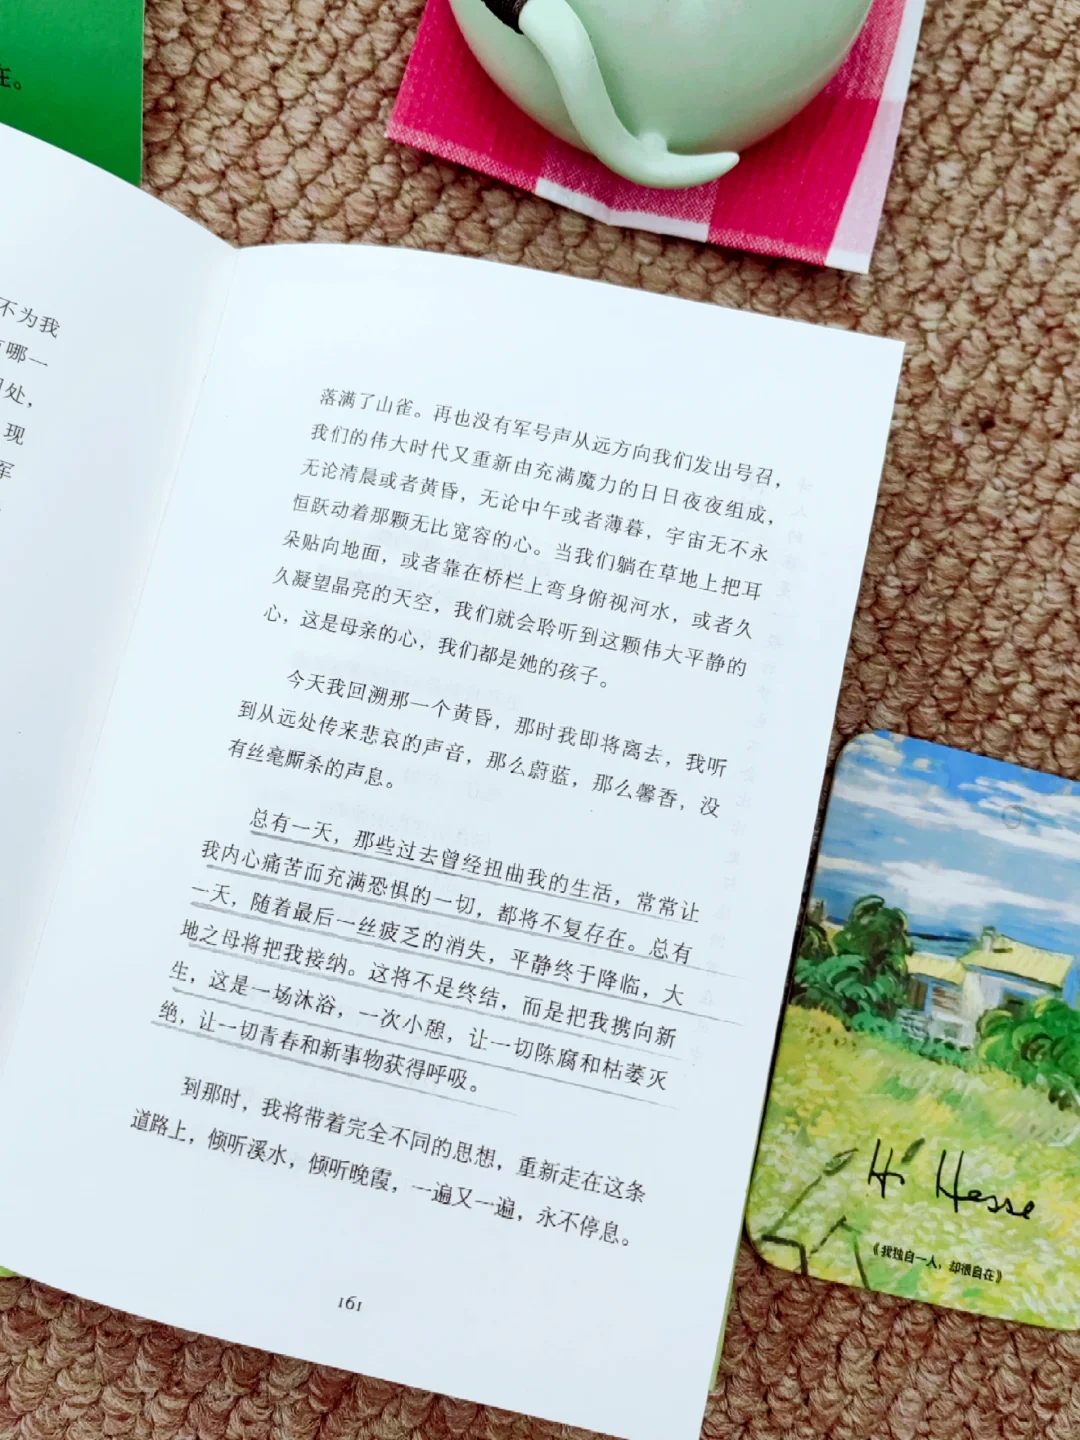 在。
不为我
哪一
处，
现
军
落满了山雀。再也没有军号声从远方向我们发出号召，
我们的伟大时代又重新由充满魔力的日日夜夜组成，
无论清晨或者黄昏，无论中午或者薄暮，宇宙无不永
恒跃动着那颗无比宽容的心。当我们躺在草地上把耳
朵贴向地面，或者靠在桥栏上弯身俯视河水，或者久
久凝望晶亮的天空，我们就会聆听到这颗伟大平静的
心，这是母亲的心，我们都是她的孩子。
今天我回溯那一个黄昏，那时我即将离去，我听
到从远处传来悲哀的声音，那么蔚蓝，那么馨香，没
有丝毫厮杀的声息。
总有一天，那些过去曾经扭曲我的生活，常常让
我内心痛苦而充满恐惧的一切，都将不复存在。总有
一天，随着最后一丝疲乏的消失，平静终于降临，大
地之母将把我接纳。这将不是终结，而是把我携向新
生，这是一场沐浴，一次小憩，让一切陈腐和枯萎灭
绝，让一切青春和新事物获得呼吸。
到那时，我将带着完全不同的思想，重新走在这条
道路上，倾听溪水，倾听晚霞，一遍又一遍，永不停息。
161
Hi Hesse
《我独自一人，却很自在》